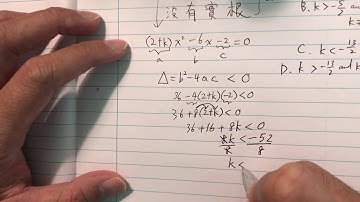 沒有實根
(2+k)x²-6x-2=0
a b c
Δ=b²-4ac<0
36-4(2+k)(-2)<0
36+8(2+k)<0
36+16+8k<0
8k<-52
8 8
k<
B. k>-5/2 and
k
C. k<-13/2
D. k>-13/2 and k